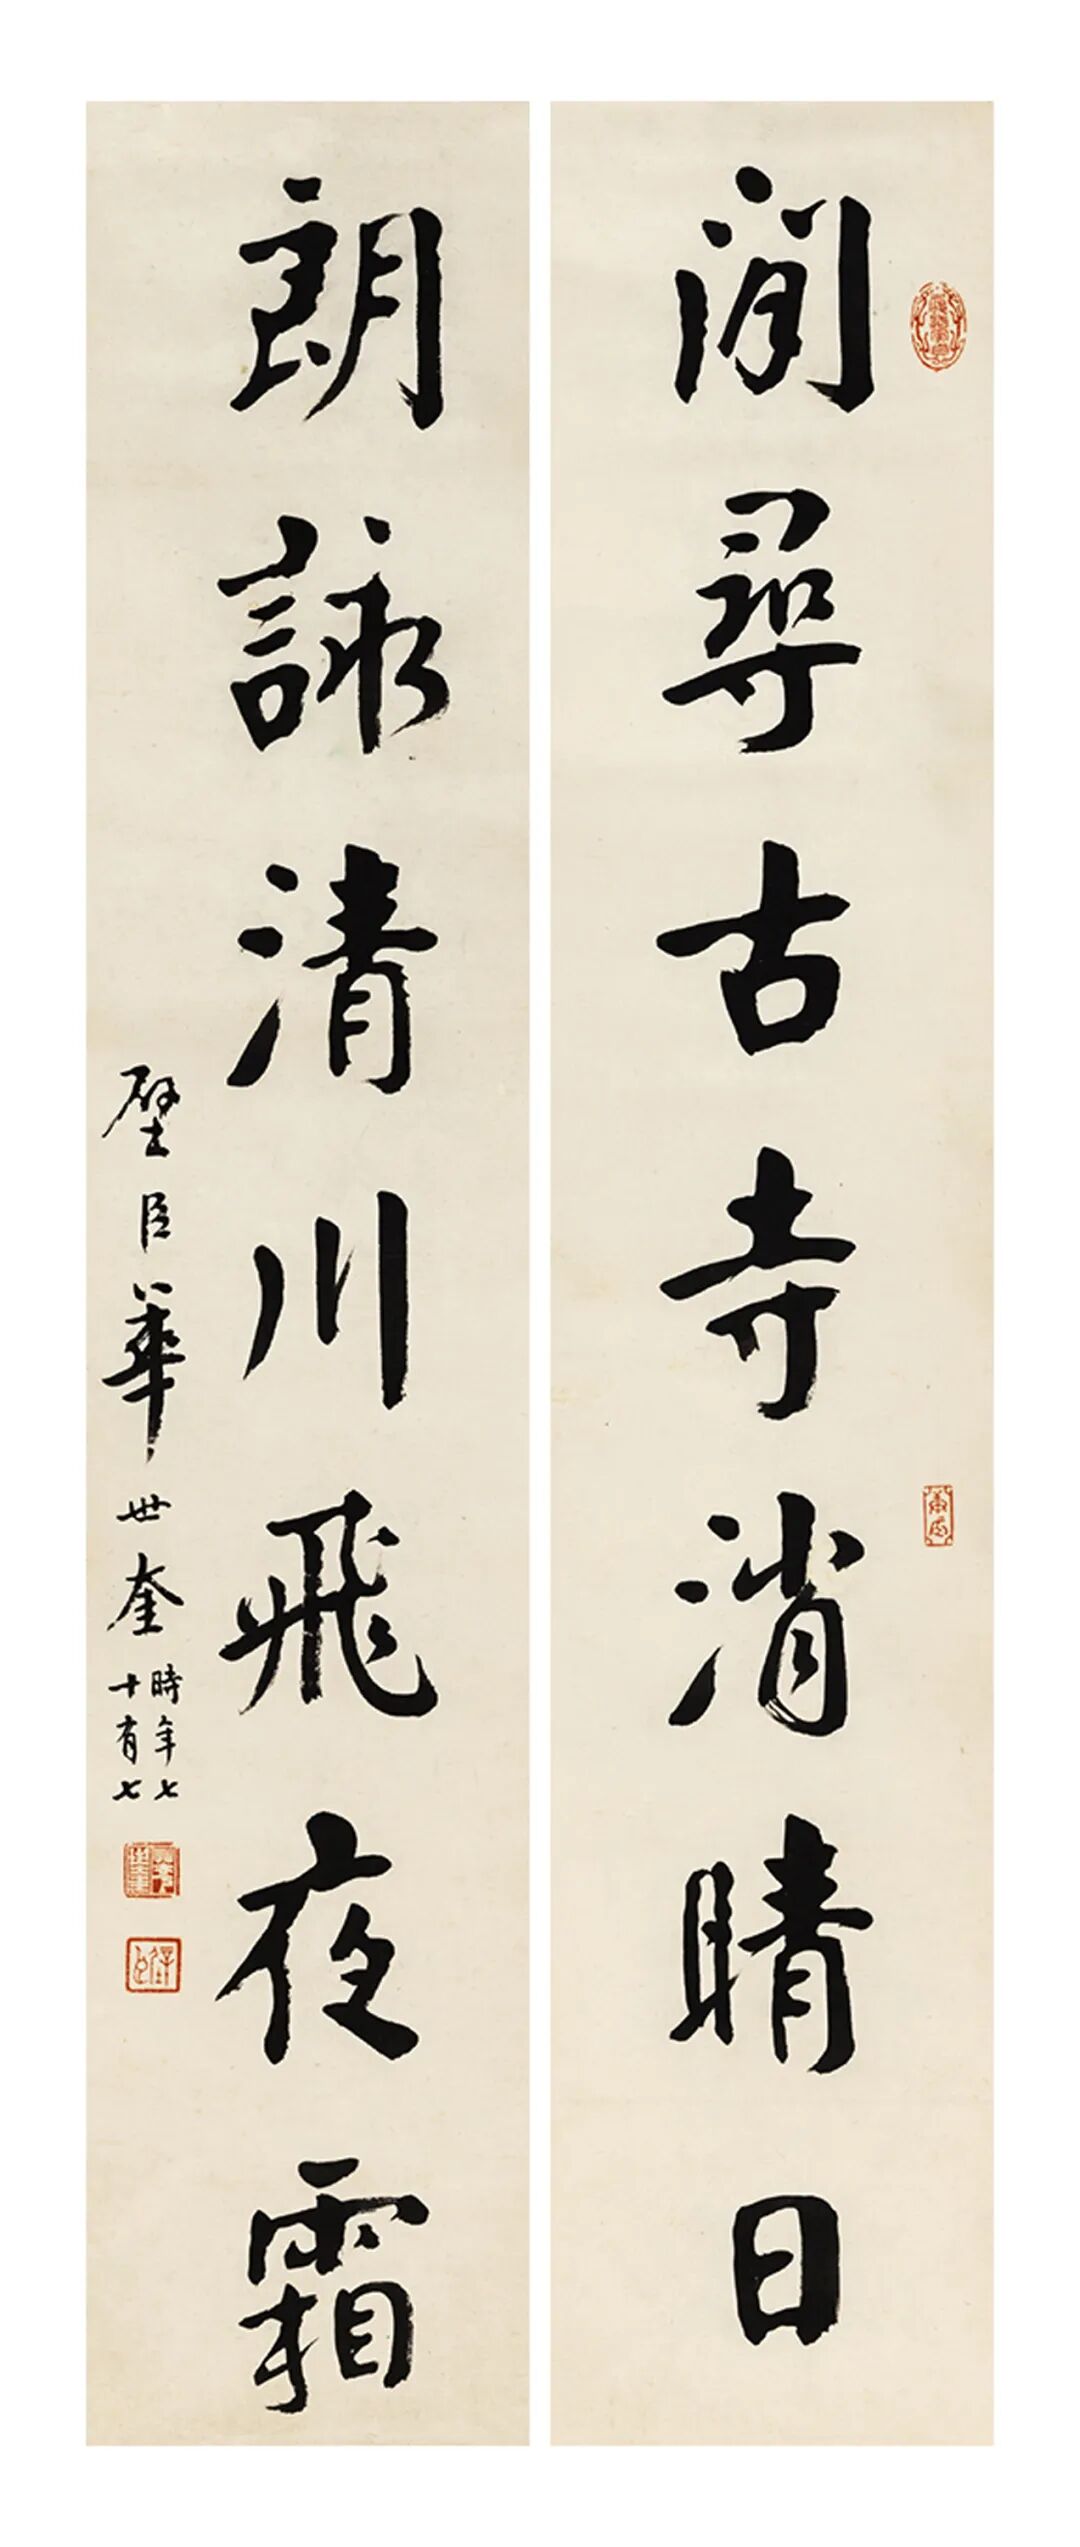 閒尋古寺消晴日
朗詠清川飛夜霜
璧臣華世奎
時年七
十有七